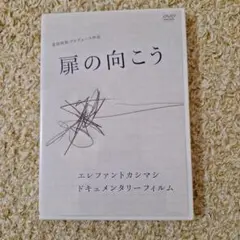 DVD
扉の向こう
エレファントカシマシ
ドキュメンタリーフィルム